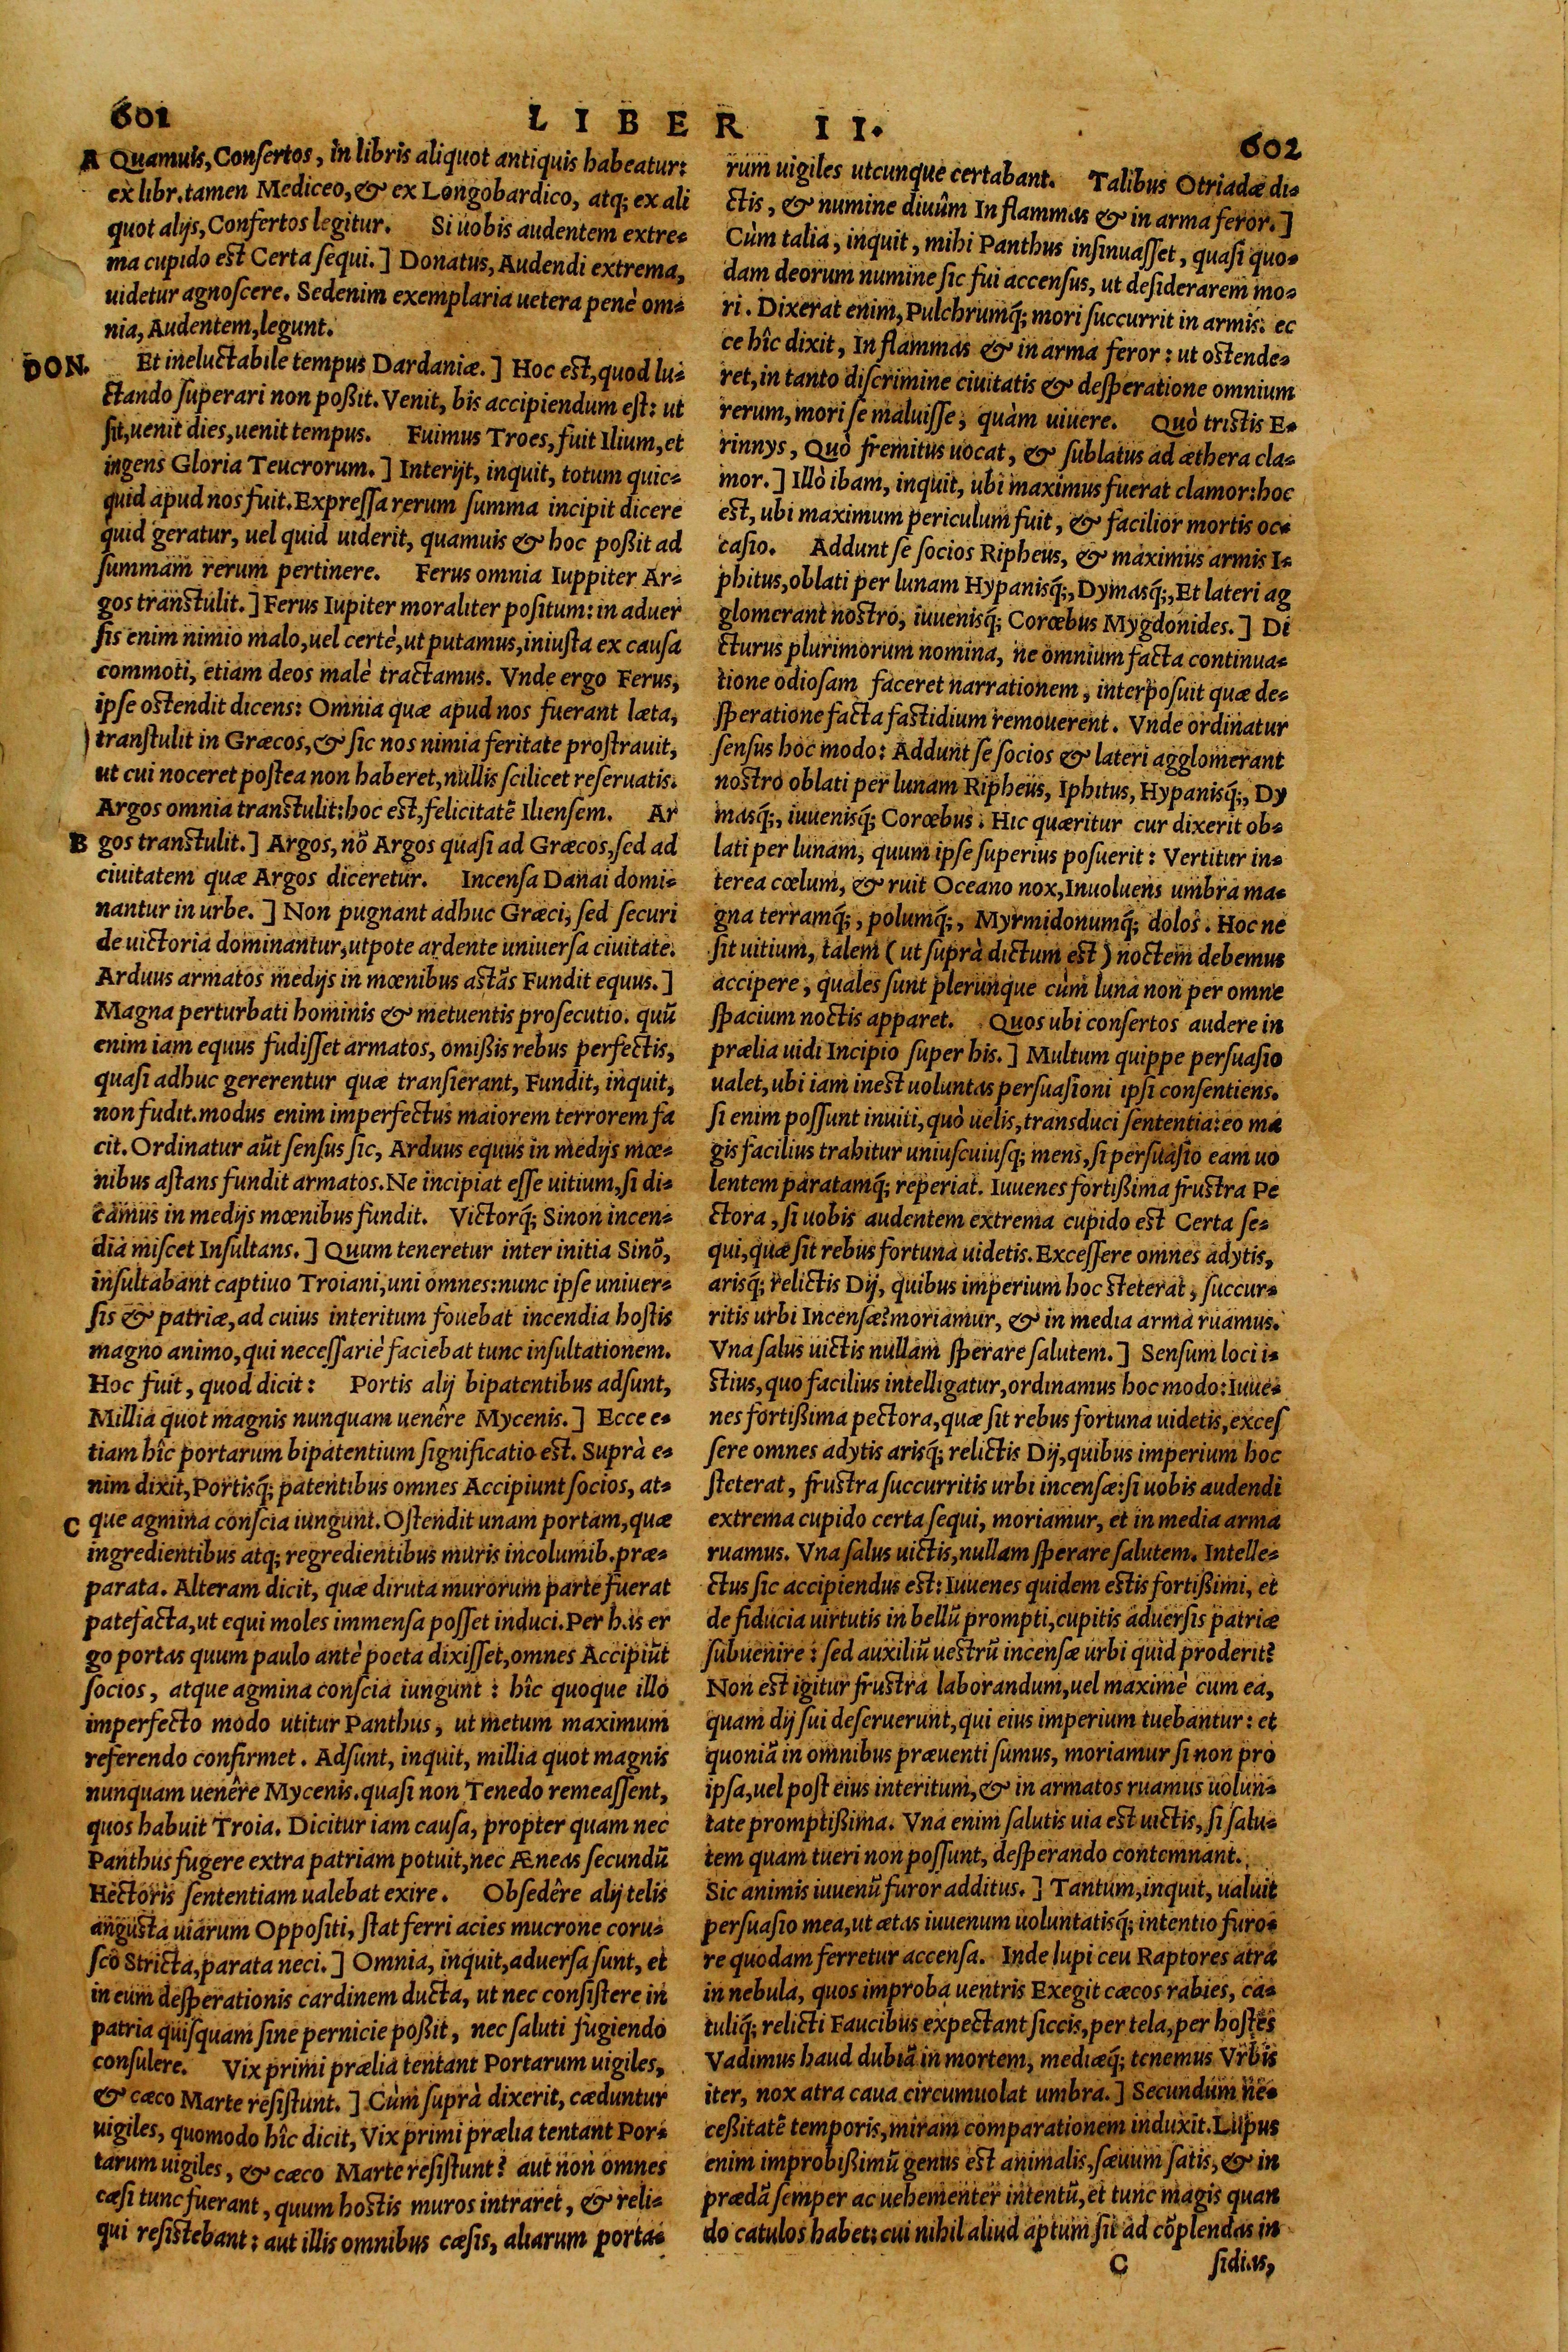 601 LIBER II. 602
A Quamuis, Consertos, in libris aliquot antiquis habeatur:
ex libr. tamen Mediceo, & ex Longobardico, atq; ex ali
quot alijs, Confertos legitur. Si uobis audentem extre-
ma cupido est Certa sequi.] Donatus, Audendi extrema,
uidetur agnoscere. Sedenim exemplaria uetera penè om-
nia, Audentem, legunt.
DON. Et ineluctabile tempus Dardaniæ.] Hoc est, quod lu-
ctando superari non poßit. Venit, bis accipiendum est: ut
sit, uenit dies, uenit tempus. Fuimus Troes, fuit Ilium, et
ingens Gloria Teucrorum.] Interijt, inquit, totum quic-
quid apud nos fuit. Expressa rerum summa incipit dicere
quid geratur, uel quid uiderit, quamuis & hoc poßit ad
summam rerum pertinere. Ferus omnia Iuppiter Ar-
gos transtulit.] Ferus Iupiter moraliter positum: in aduer
sis enim nimio malo, uel certè, ut putamus, iniusta ex causa
commoti, etiam deos malè tractamus. Vnde ergo Ferus,
ipse ostendit dicens: Omnia quæ apud nos fuerant læta,
transtulit in Græcos, & sic nos nimia feritate prostrauit,
ut cui noceret postea non haberet, nullis scilicet reseruatis.
Argos omnia transtulit: hoc est, felicitatē Iliensem. Ar
B gos transtulit.] Argos, nō Argos quasi ad Græcos, sed ad
ciuitatem quæ Argos diceretur. Incensa Danai domi-
nantur in urbe.] Non pugnant adhuc Græci, sed securi
de uictoria dominantur, utpote ardente uniuersa ciuitate.
Arduus armatos medijs in mœnibus astãs Fundit equus.]
Magna perturbati hominis & metuentis prosecutio. quũ
enim iam equus fudisset armatos, omißis rebus perfectis,
quasi adhuc gererentur quæ transierant, Fundit, inquit,
non fudit. modus enim imperfectus maiorem terrorem fa
cit. Ordinatur aũt sensus sic, Arduus equus in medijs mœ-
nibus astans fundit armatos. Ne incipiat esse uitium, si di-
camus in medijs mœnibus fundit. Victorq́; Sinon incen-
dia miscet Insultans.] Quum teneretur inter initia Sinõ,
insultabant captiuo Troiani, uni omnes: nunc ipse uniuer-
sis & patriæ, ad cuius interitum fouebat incendia hostis
magno animo, qui necessariè faciebat tunc insultationem.
Hoc fuit, quod dicit: Portis alij bipatentibus adsunt,
Millia quot magnis nunquam uenêre Mycenis.] Ecce e-
tiam hîc portarum bipatentium significatio est. Suprà e-
nim dixit, Portisq́; patentibus omnes Accipiunt socios, at-
C que agmina conscia iungunt. Ostendit unam portam, quæ
ingredientibus atq; regredientibus muris incolumib. præ-
parata. Alteram dicit, quæ diruta murorum parte fuerat
patefacta, ut equi moles immensa posset induci. Per has er
go portas quum paulo antè poeta dixisset, omnes Accipiũt
socios, atque agmina conscia iungunt: hîc quoque illo
imperfecto modo utitur Panthus, ut metum maximum
referendo confirmet. Adsunt, inquit, millia quot magnis
nunquam uenêre Mycenis. quasi non Tenedo remeassent,
quos habuit Troia. Dicitur iam causa, propter quam nec
Panthus fugere extra patriam potuit, nec Æneas secundũ
Hectoris sententiam ualebat exire. Obsedêre alij telis
angusta uiarum Oppositi, stat ferri acies mucrone coru-
sco Stricta, parata neci.] Omnia, inquit, aduersa sunt, et
in eum desperationis cardinem ducta, ut nec consistere in
patria quisquam sine pernicie poßit, nec saluti fugiendo
consulere. Vix primi prælia tentant Portarum uigiles,
& cæco Marte resistunt.] Cùm suprà dixerit, cæduntur
uigiles, quomodo hîc dicit, Vix primi prælia tentant Por-
tarum uigiles, & cæco Marte resistunt? aut non omnes
cæsi tunc fuerant, quum hostis muros intraret, & reli-
qui resistebant: aut illis omnibus cæsis, aliarum porta-
rum uigiles utcunque certabant. Talibus Otriadæ di-
ctis, & numine diuûm In flammas & in arma feror.]
Cùm talia, inquit, mihi Panthus insinuasset, quasi quo-
dam deorum numine sic fui accensus, ut desiderarem mo-
ri. Dixerat enim, Pulchrumq́; mori succurrit in armis. ec
ce hîc dixit, In flammas & in arma feror: ut ostende-
ret, in tanto discrimine ciuitatis & desperatione omnium
rerum, mori se maluisse, quàm uiuere. Quò tristis E-
rinnys, Quò fremitus uocat, & sublatus ad æthera cla-
mor.] Illò ibam, inquit, ubi maximus fuerat clamor: hoc
est, ubi maximum periculum fuit, & facilior mortis oc-
casio. Addunt se socios Ripheus, & maximus armis I-
phitus, oblati per lunam Hypanisq́;, Dymasq́;, Et lateri ag
glomerant nostro, iuuenisq́; Corœbus Mygdonides.] Di
cturus plurimorum nomina, ne omnium facta continua-
tione odiosam faceret narrationem, interposuit quæ de-
speratione facta fastidium remouerent. Vnde ordinatur
sensus hoc modo: Addunt se socios & lateri agglomerant
nostro oblati per lunam Ripheus, Iphitus, Hypanisq́;, Dy
masq́;, iuuenisq́; Corœbus. Hic quæritur cur dixerit ob-
lati per lunam, quum ipse superius posuerit: Vertitur in-
terea cœlum, & ruit Oceano nox, Inuoluens umbra ma-
gna terramq́;, polumq́;, Myrmidonumq́; dolos. Hoc ne
sit uitium, talem (ut suprà dictum est) noctem debemus
accipere, quales sunt plerunque cùm luna non per omne
spacium noctis apparet. Quos ubi consertos audere in
prælia uidi Incipio super his.] Multum quippe persuasio
ualet, ubi iam inest uoluntas persuasioni ipsi consentiens.
si enim possunt inuiti, quò uelis, transduci sententia: eo ma
gis facilius trahitur uniuscuiusq; mens, si persuasio eam uo
lentem paratamq́; reperiat. Iuuenes fortißima frustra Pe
ctora, si uobis audentem extrema cupido est Certa se-
qui, quæ sit rebus fortuna uidetis. Excessere omnes adytis,
arisq́; relictis Dij, quibus imperium hoc steterat, succur-
ritis urbi Incensæ: moriamur, & in media arma ruamus.
Vna salus uictis nullam sperare salutem.] Sensum loci i-
stius, quo facilius intelligatur, ordinamus hoc modo: Iuue-
nes fortißima pectora, quæ sit rebus fortuna uidetis, exces
sere omnes adytis arisq́; relictis Dij, quibus imperium hoc
steterat, frustra succurritis urbi incensæ: si uobis audendi
extrema cupido certa sequi, moriamur, et in media arma
ruamus. Vna salus uictis, nullam sperare salutem. Intelle-
ctus sic accipiendus est: Iuuenes quidem estis fortißimi, et
de fiducia uirtutis in bellũ prompti, cupitis aduersis patriæ
subuenire: sed auxiliũ uestrũ incensæ urbi quid proderit?
Non est igitur frustra laborandum, uel maximè cum ea,
quam dij sui deseruerunt, qui eius imperium tuebantur: et
quoniã in omnibus præuenti sumus, moriamur si non pro
ipsa, uel post eius interitum, & in armatos ruamus uolun-
tate promptißima. Vna enim salutis uia est uictis, si salu-
tem quam tueri non possunt, desperando contemnant.
Sic animis iuuenũ furor additus.] Tantum, inquit, ualuit
persuasio mea, ut ætas iuuenum uoluntatisq́; intentio furo-
re quodam ferretur accensa. Inde lupi ceu Raptores atra
in nebula, quos improba uentris Exegit cæcos rabies, ca-
tuliq́; relicti Faucibus expectant siccis, per tela, per hostes
Vadimus haud dubiã in mortem, mediæq́; tenemus Vrbis
iter, nox atra caua circumuolat umbra.] Secundum ne-
ceßitatē temporis, miram comparationem induxit. Lupus
enim improbißimũ genus est animalis, sæuum satis, & in
prædã semper ac uehementer intentũ, et tunc magis quan
do catulos habet: cui nihil aliud aptum sit ad cõplendas in
C sidias,